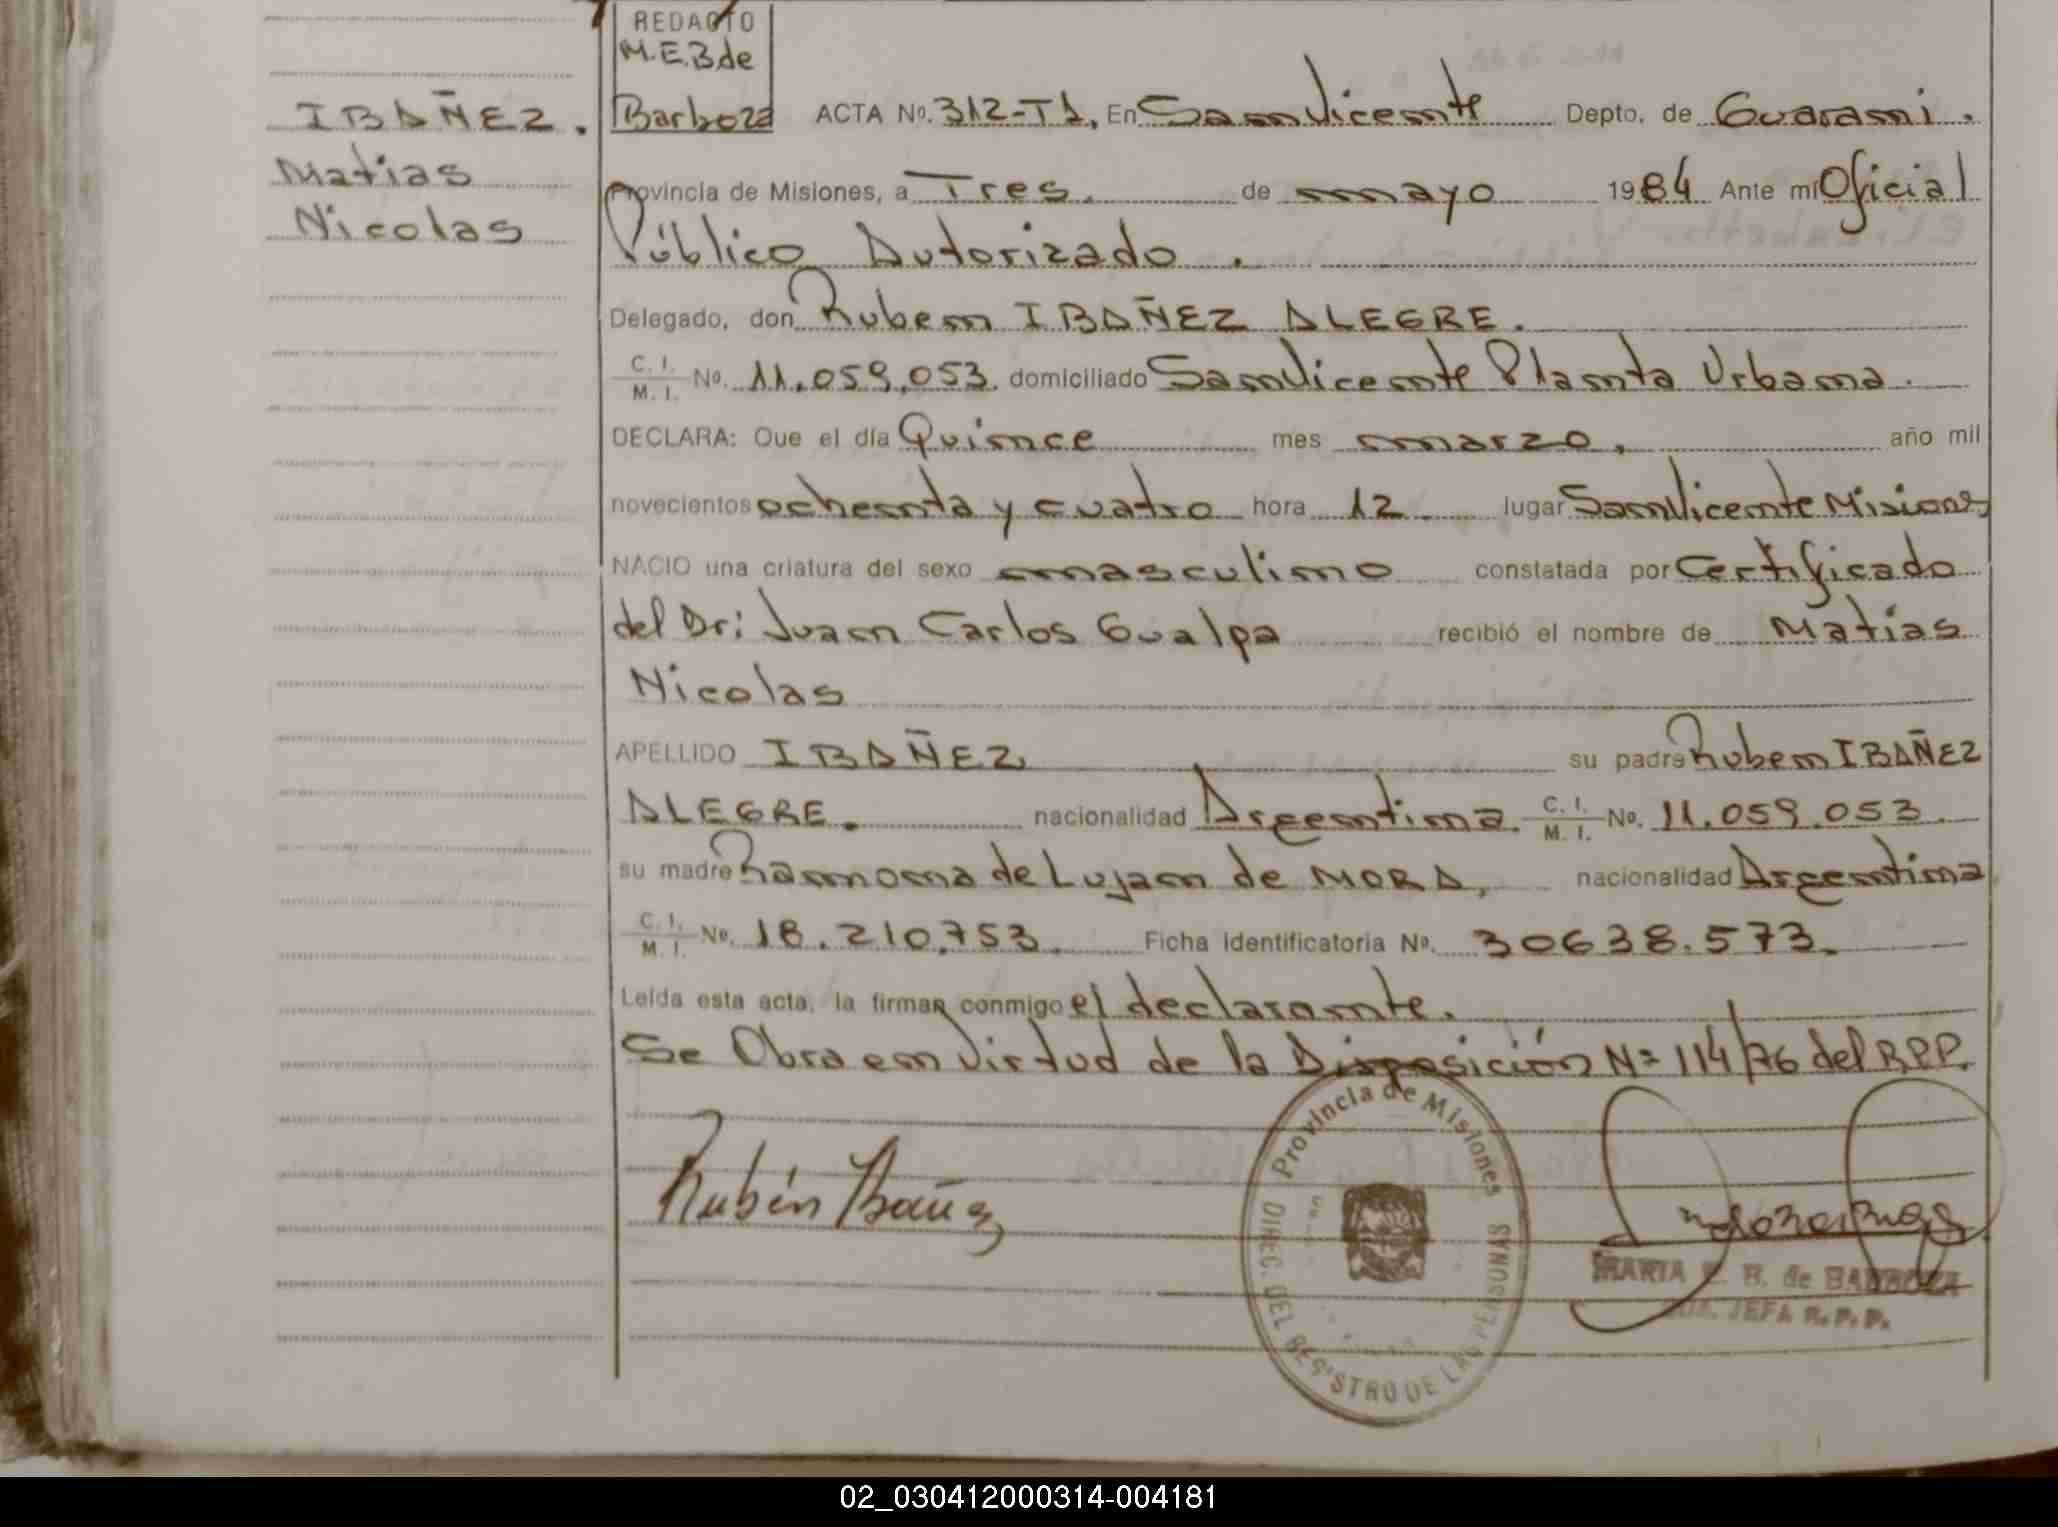 REDACTO
M.E.B de
Barboza
IBAÑEZ.
Matias
Nicolas
ACTA Nº. 312-T1. En San Vicente Depto. de Guarani.
Provincia de Misiones, a Tres. de mayo 1984 Ante mí Oficial
Público Autorizado.
Delegado, don Ruben IBAÑEZ ALEGRE.
C. I. / M. I. Nº. 11.059.053. domiciliado San Vicente Planta Urbana.
DECLARA: Que el día Quince mes marzo, año mil
novecientos ochenta y cuatro hora 12. lugar San Vicente Misiones
NACIO una criatura del sexo masculino constatada por Certificado
del Dr: Juan Carlos Gualpa recibió el nombre de Matias
Nicolas
APELLIDO IBAÑEZ su padre Ruben IBAÑEZ
ALEGRE. nacionalidad Argentina. C. I. / M. I. Nº. 11.059.053.
su madre Ramona de Lujan de MORA, nacionalidad Argentina
C. I. / M. I. Nº. 18.210.753. Ficha Identificatoria Nº. 30638.573.
Leída esta acta, la firman conmigo el declarante.
Se Obra en virtud de la Disposición Nº 114/76 del R.P.P.
Rubén Ibañez
Provincia de Misiones
DIREC. DEL REGISTRO DE LAS PERSONAS
MARIA E. B. de BARBOZA
JEFA R.P.P.
02_030412000314-004181